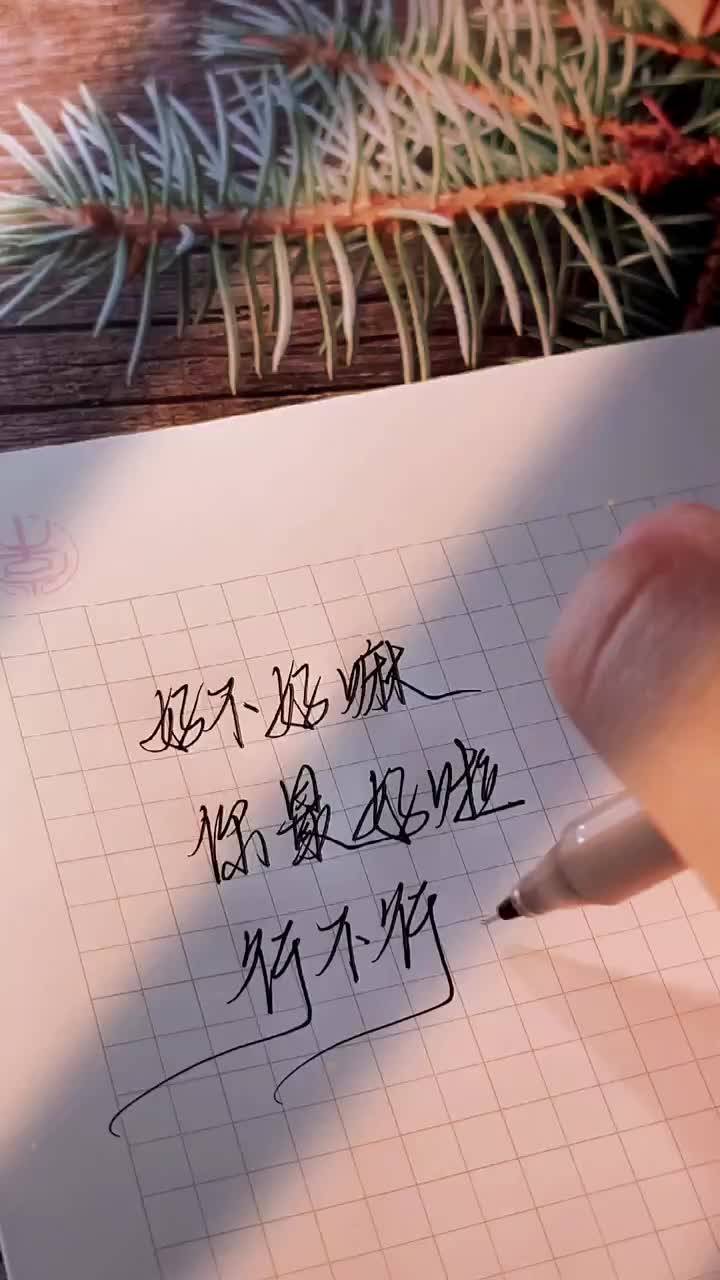 好不好嘛
你最好啦
行不行